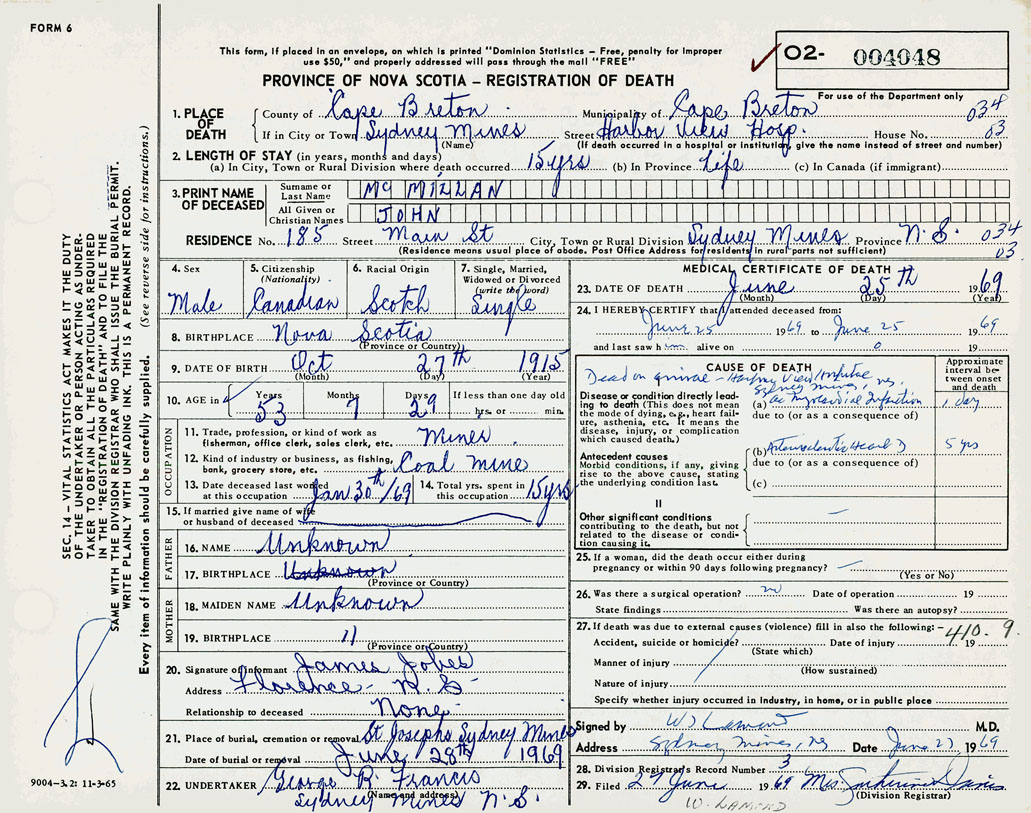 FORM 6
This form, if placed in an envelope, on which is printed "Dominion Statistics – Free, penalty for improper
use $50," and properly addressed will pass through the mail "FREE"
PROVINCE OF NOVA SCOTIA – REGISTRATION OF DEATH
O2- 004048
For use of the Department only
1. PLACE OF DEATH
County of Cape Breton Municipality of Cape Breton 034
If in City or Town Sydney Mines Street Harbor View Hosp. House No. 03
(Name) (If death occurred in a hospital or institution, give the name instead of street and number)
2. LENGTH OF STAY (in years, months and days)
(a) In City, Town or Rural Division where death occurred 15 yrs (b) In Province Life (c) In Canada (if immigrant)
3. PRINT NAME OF DECEASED
Surname or Last Name MC MILLAN
All Given or Christian Names JOHN
RESIDENCE No. 185 Street Main St City, Town or Rural Division Sydney Mines Province N.S. 034
(Residence means usual place of abode. Post Office Address for residents in rural parts not sufficient) 03.
4. Sex Male
5. Citizenship (Nationality) Canadian
6. Racial Origin Scotch
7. Single, Married, Widowed or Divorced (write the word) Single
8. BIRTHPLACE Nova Scotia
(Province or Country)
9. DATE OF BIRTH Oct 27th 1915
(Month) (Day) (Year)
10. AGE in Years Months Days If less than one day old
53 7 29 hrs. or min.
OCCUPATION
11. Trade, profession, or kind of work as
fisherman, office clerk, sales clerk, etc. Miner
12. Kind of industry or business, as fishing,
bank, grocery store, etc. Coal Mine
13. Date deceased last worked
at this occupation Jan 30th/69
14. Total yrs. spent in
this occupation 15 yrs
15. If married give name of wife
or husband of deceased
FATHER
16. NAME Unknown
17. BIRTHPLACE Unknown
(Province or Country)
MOTHER
18. MAIDEN NAME Unknown
19. BIRTHPLACE 11
(Province or Country)
20. Signature of informant James Jobes
Address Florence - N.S.
Relationship to deceased None
21. Place of burial, cremation or removal St Josephs Sydney Mines
Date of burial or removal June 28th 1969
22. UNDERTAKER George R. Francis
(Name and address)
Sydney Mines N.S.
MEDICAL CERTIFICATE OF DEATH
23. DATE OF DEATH June 25th 1969
(Month) (Day) (Year)
24. I HEREBY CERTIFY that I attended deceased from:
June 25 1969 to June 25 1969
and last saw him alive on 0 19
CAUSE OF DEATH
Approximate interval between onset and death
Dead on arrival - Harbor View Hospital
Sydney Mines, NS
Disease or condition directly leading to death (This does not mean
the mode of dying, e.g., heart failure, asthenia, etc. It means the
disease, injury, or complication
which caused death.)
(a) Ac Myocardial Infarction 1 day
due to (or as a consequence of)
Antecedent causes
Morbid conditions, if any, giving
rise to the above cause, stating
the underlying condition last.
(b) Heart D 5 yrs
due to (or as a consequence of)
(c)
II
Other significant conditions
contributing to the death, but not
related to the disease or condition causing it.
25. If a woman, did the death occur either during
pregnancy or within 90 days following pregnancy?
(Yes or No)
26. Was there a surgical operation? no Date of operation 19
State findings Was there an autopsy?
27. If death was due to external causes (violence) fill in also the following:– 410.9.
Accident, suicide or homicide? Date of injury 19
(State which)
Manner of injury
(How sustained)
Nature of injury
Specify whether injury occurred in industry, in home, or in public place
Signed by W. Lamond M.D.
Address Sydney Mines, NS Date June 27 1969
28. Division Registrar's Record Number 3
29. Filed 27 June 1969 Mrs Davis
(Division Registrar)
W. LAMOND
SEC. 14 – VITAL STATISTICS ACT MAKES IT THE DUTY
OF THE UNDERTAKER OR PERSON ACTING AS UNDERTAKER TO OBTAIN ALL THE PARTICULARS REQUIRED
IN THE "REGISTRATION OF DEATH" AND TO FILE THE
SAME WITH THE DIVISION REGISTRAR WHO SHALL ISSUE THE BURIAL PERMIT.
WRITE PLAINLY WITH UNFADING INK. THIS IS A PERMANENT RECORD.
Every item of information should be carefully supplied. (See reverse side for instructions.)
9004–3.2: 11-3-65